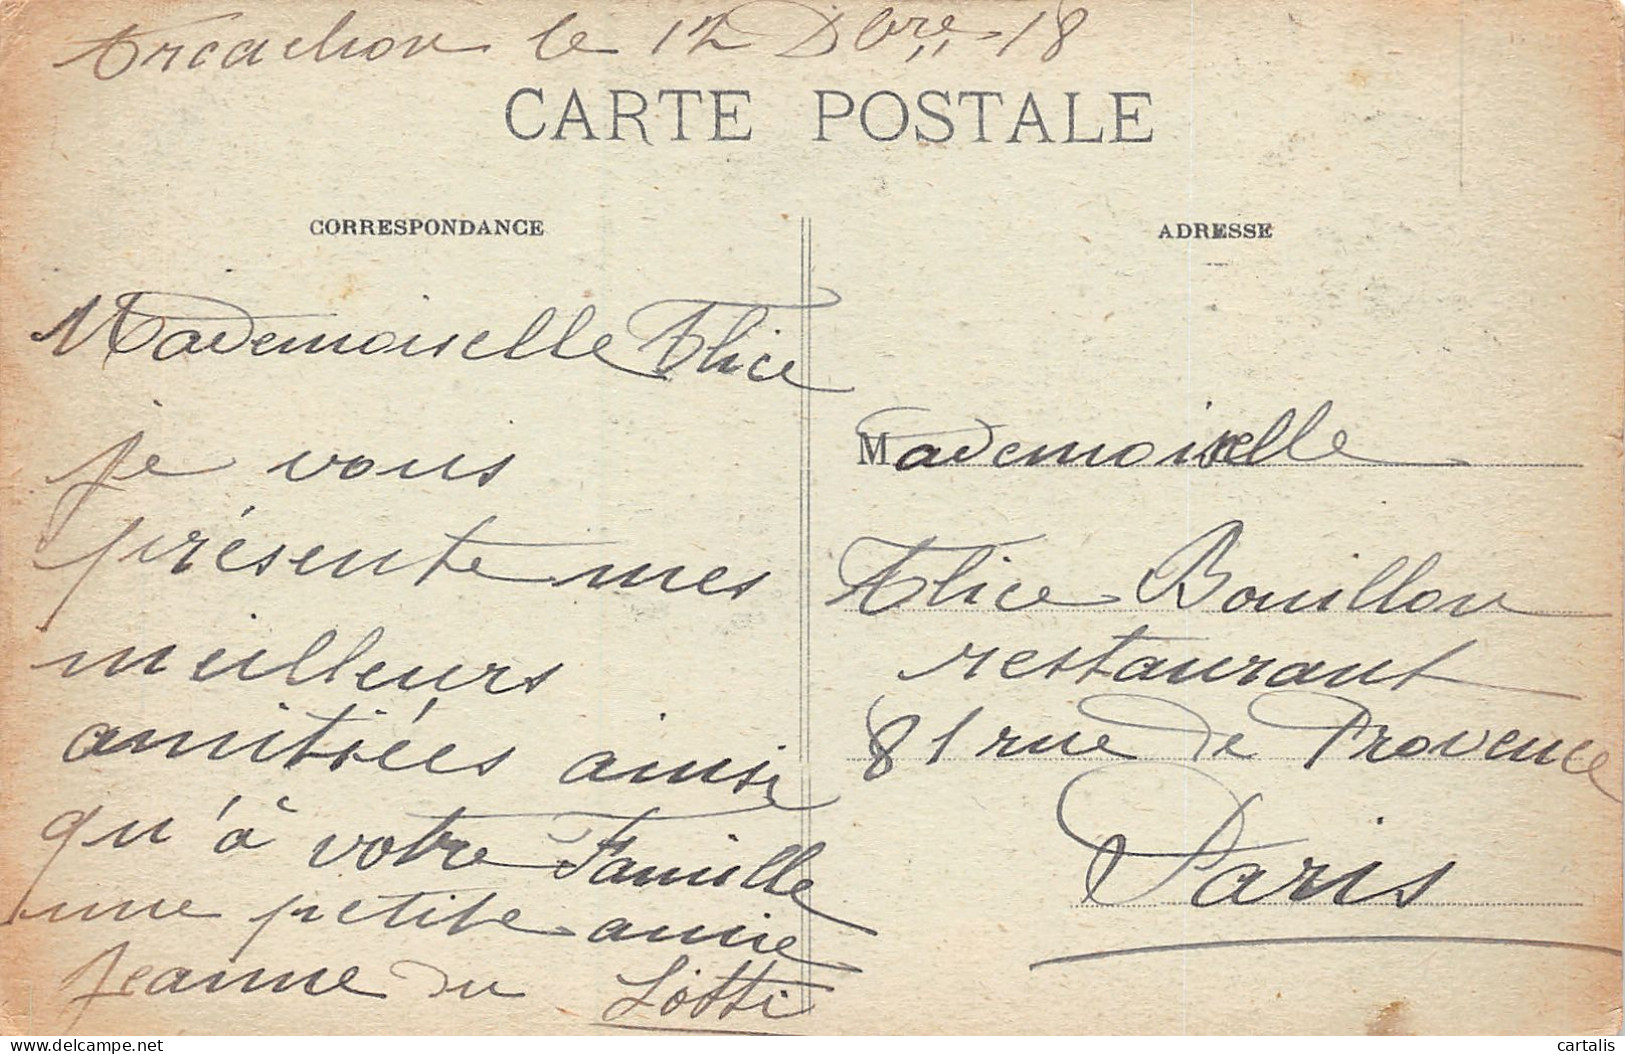 Arcachon le 12 Dbre 18
CARTE POSTALE
CORRESPONDANCE
Mademoiselle Alice
je vous
présente mes
meilleurs
amitiées ainsi
qu'à votre Famille
une petite amie
Jeanne du Lotti
ADRESSE
Mademoiselle
Alice Bouillon
restaurant
81 rue de Provence
Paris
delcampe.net
cartalis